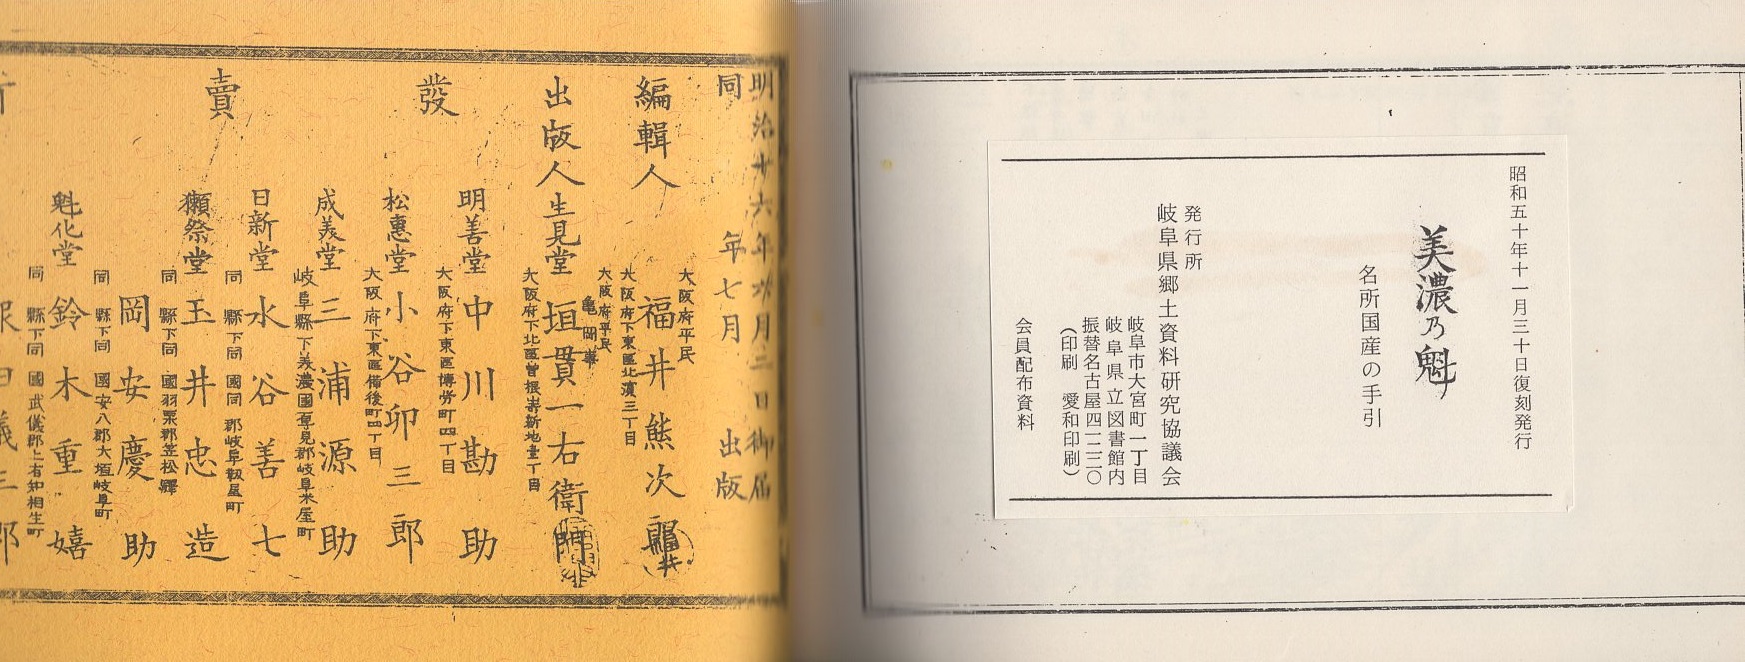 昭和五十年十一月三十日復刻発行
美濃乃魁
名所国産の手引
発行所
岐阜県郷土資料研究協議会
岐阜市大宮町一丁目
岐阜県立図書館内
振替名古屋四一二二〇
(印刷 愛和印刷)
会員配布資料
明治十六年六月二日御届
同 年七月 出版
大阪府平民
編輯人 福井熊次郎
大阪府下東區北濱三丁目
大阪府平民
出版人 生見堂 垣貫一右衛門
大阪府下北區曽根嵜新地壹丁目
發
明善堂 中川勘助
大阪府下東區博労町四丁目
松惠堂 小谷卯三郎
大阪府下東區備後町四丁目
成美堂 三浦源助
岐阜縣下美濃國厚見郡岐阜米屋町
日新堂 水谷善七
同 縣下同 國同 郡岐阜靱屋町
賣
獺祭堂 玉井忠造
同 縣下同 國羽栗郡笠松驛
岡安慶助
同 縣下同 國安八郡大垣岐阜町
魁化堂 鈴木重嬉
同 縣下同 國武儀郡上有知相生町